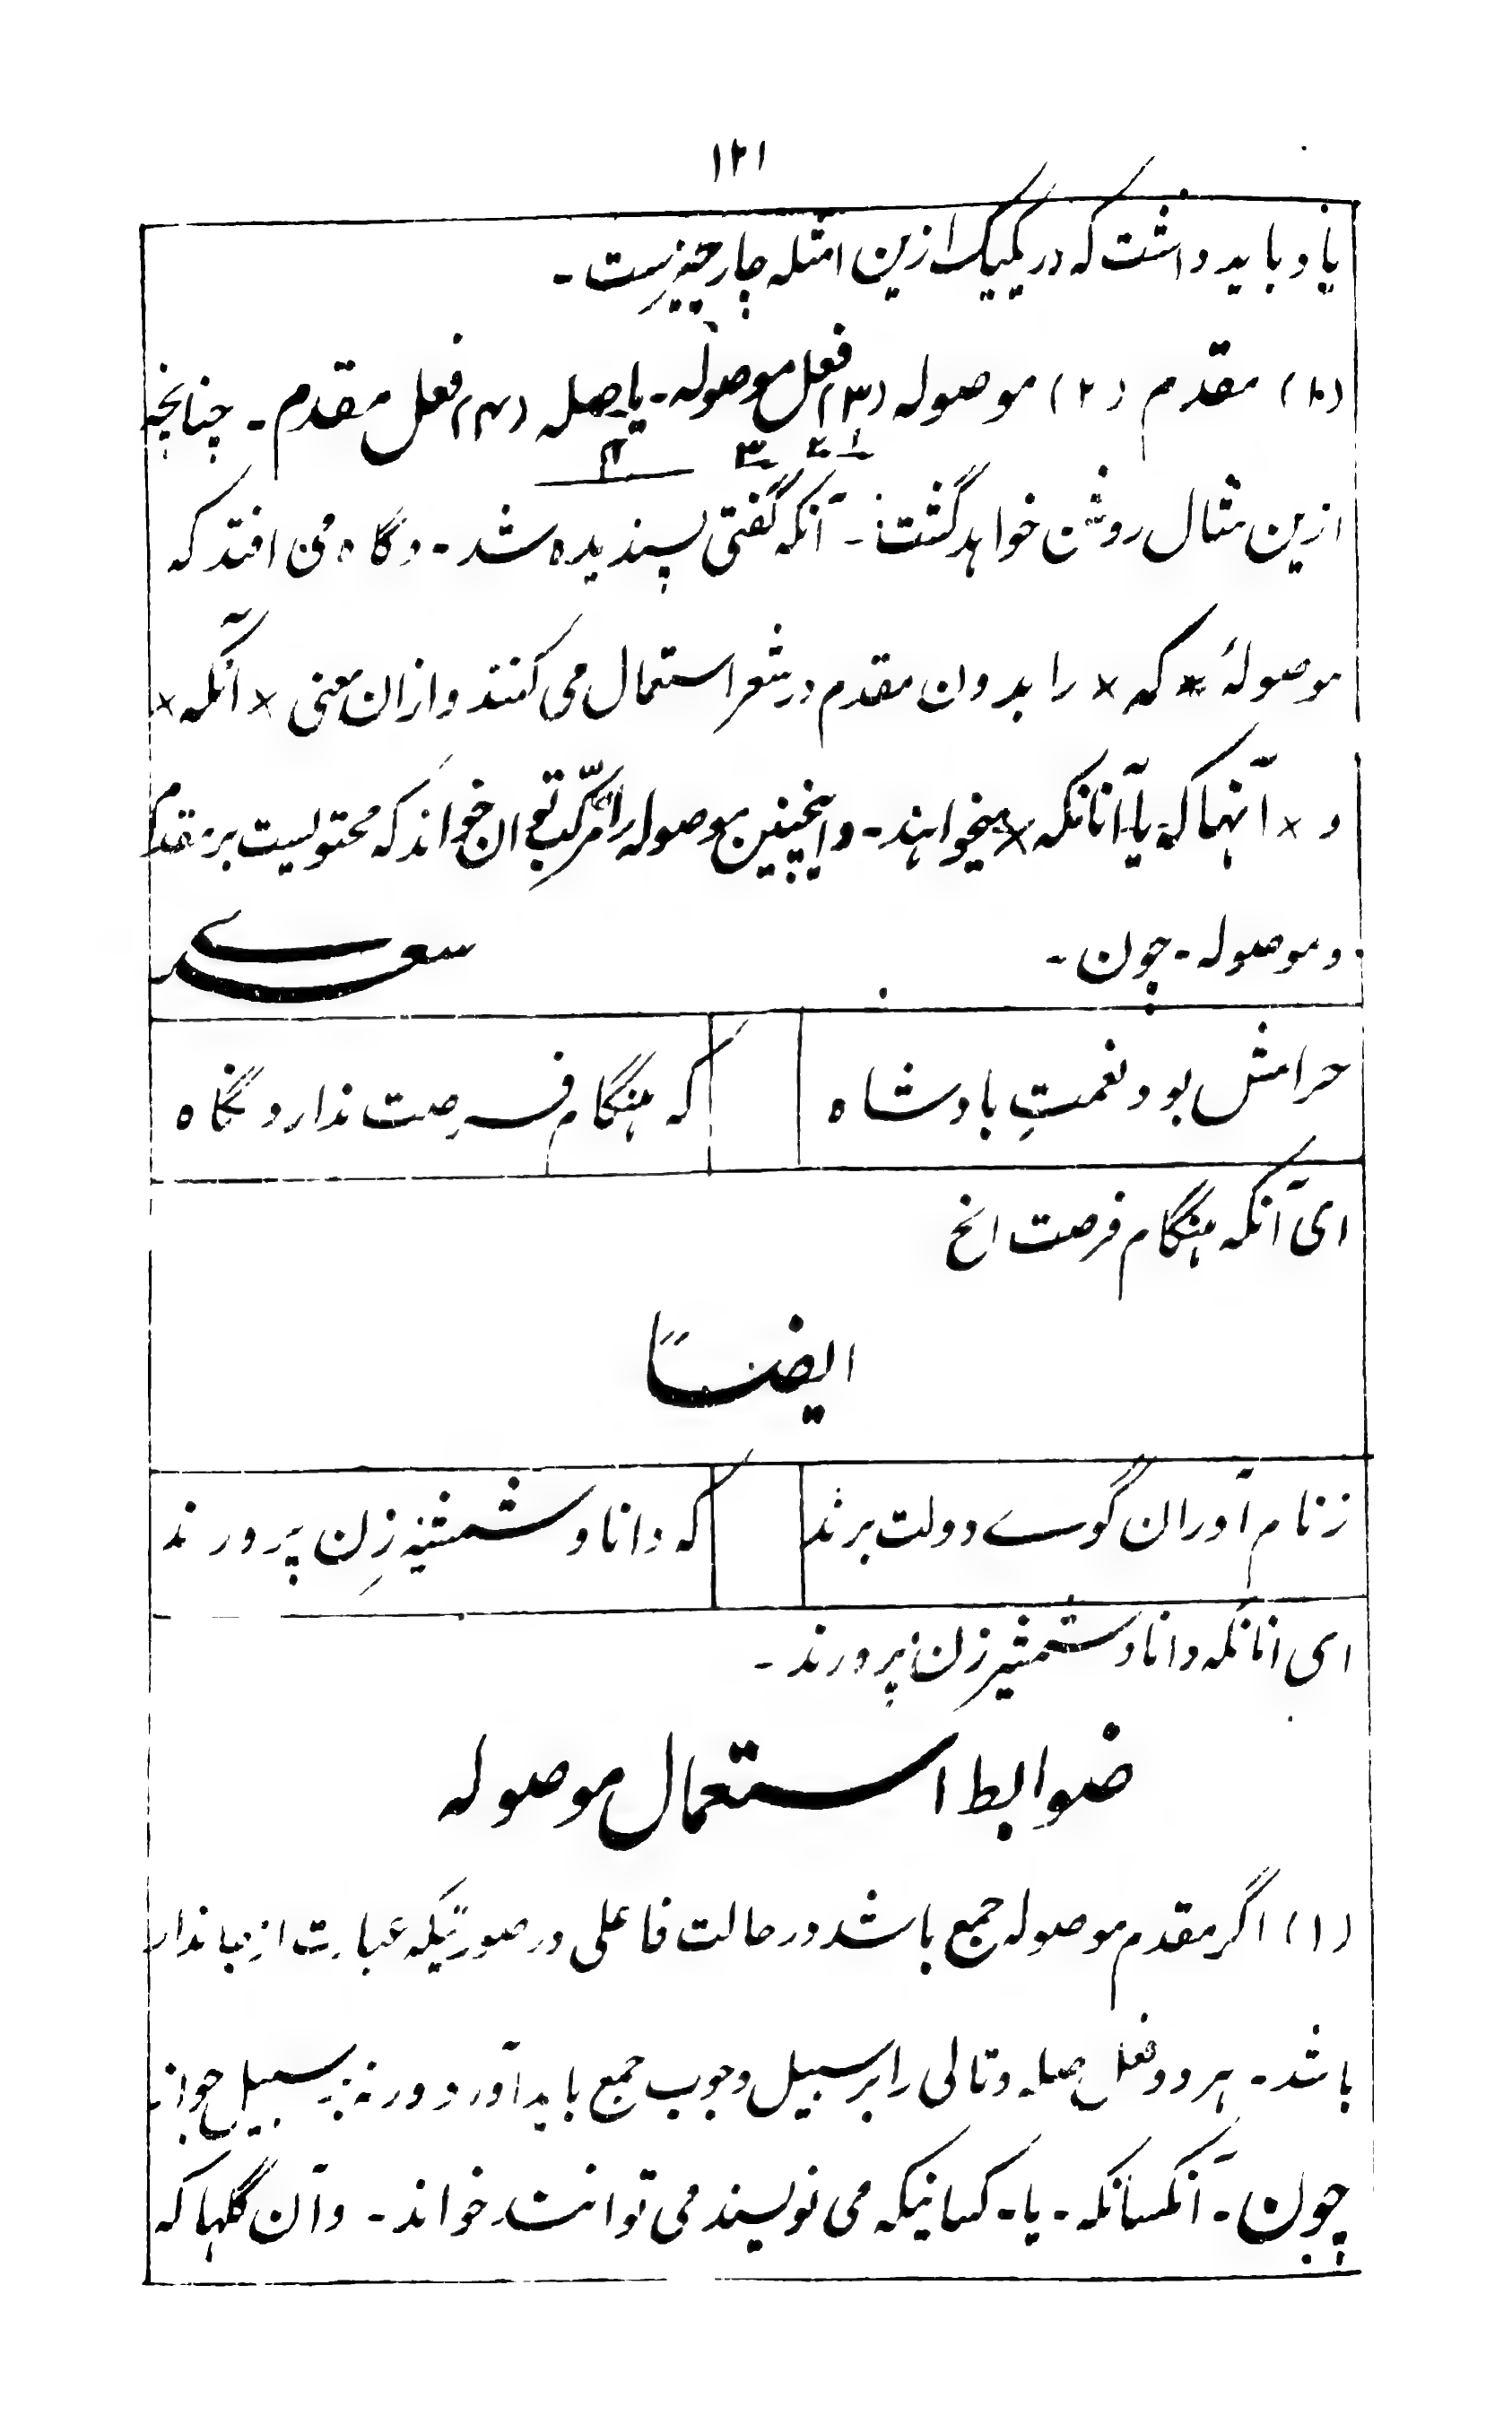 ۱۲۱
یاد باید داشت که در یکیک ازین امثله چار چیزست -
(۱) مقدم (۲) موصوله (۳) فعل موصوله - یا صله (۴) فعل مقدم - چنانچه
۱ ۲ ۳ ۴
ازین مثال روشن خواهد گشت - آنکه گفتی پسندیده شد - و گاه می افتد که
موصولۂ × که × را بدون مقدم در شعر استعمال می کنند و ازان معنی × آنکه ×
و × آنها که یا آنانکه × میخواهند - و اینچنین موصوله را مرکّب توان خواند که محتویست بر مقدم
و موصوله - چون - سعدی
حرامش بود نعمتِ بادشاه که هنگام فرصت ندارد نگاه
ای آنکه هنگام فرصت الخ
ایضاً
ز نام آوران گوے دولت برند که دانا و شمشیر زن پرورند
ای آنانکه دانا و شمشیر زن پرورند -
ضوابط استعمال موصوله
(۱) اگر مقدم موصوله جمع باشد در حالت فاعلی در صورتیکه عبارت از جاندار
باشد - هر دو فعل صله و تالی را بر سبیل وجوب جمع باید آورد ورنه بر سبیل جواز
چون - آنکسانکه - یا - کسانیکه می نویسند می توانند خواند - و آن گلها که